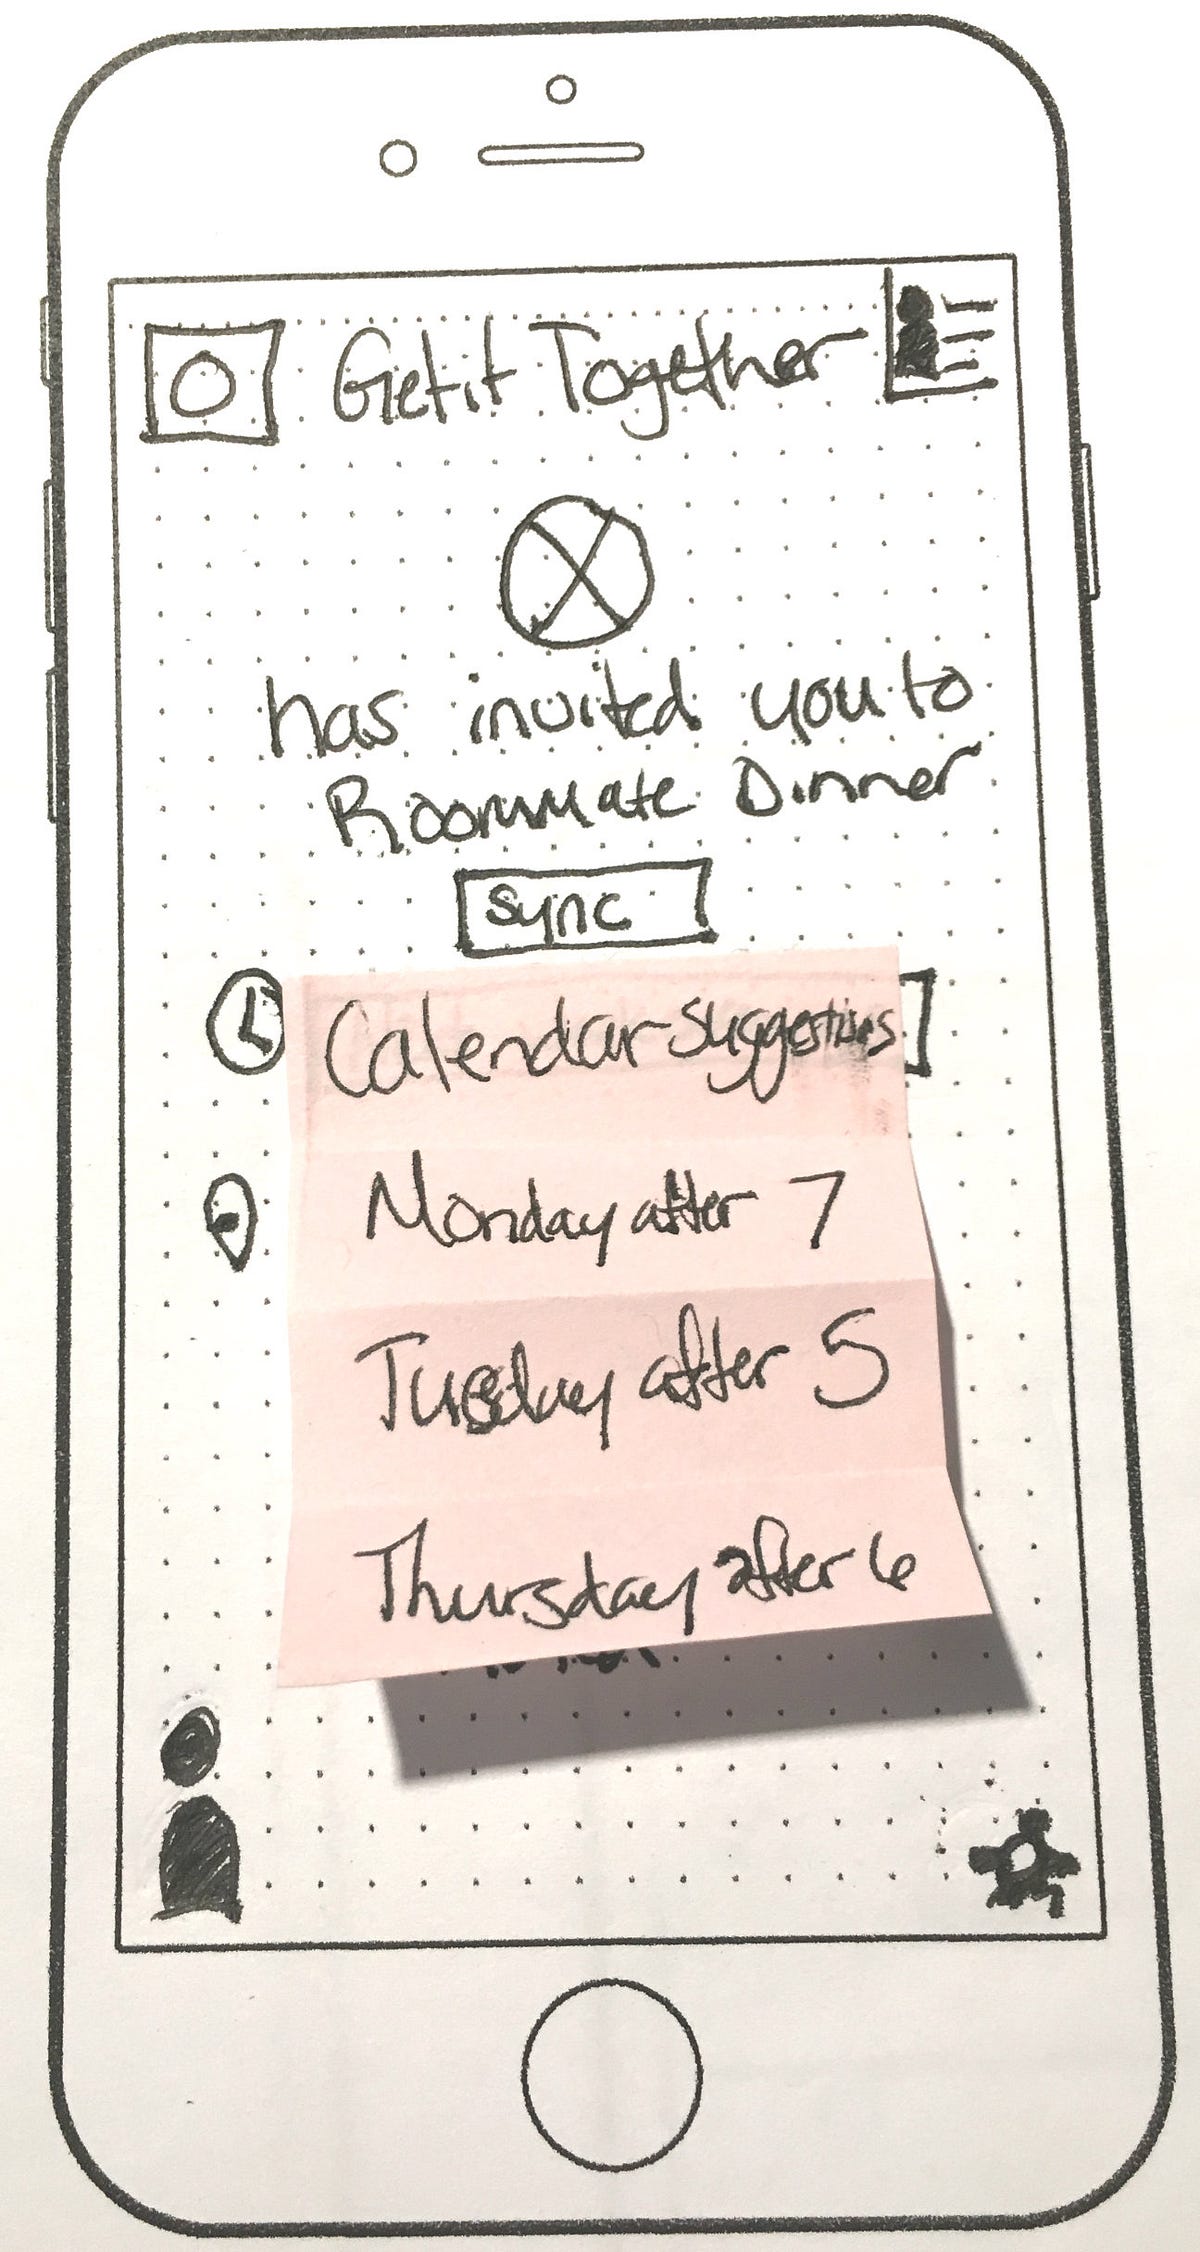 Get it Together
has invited you to
Roommate Dinner
Sync
Calendar Suggestions
Monday after 7
Tuesday after 5
Thursday after 6